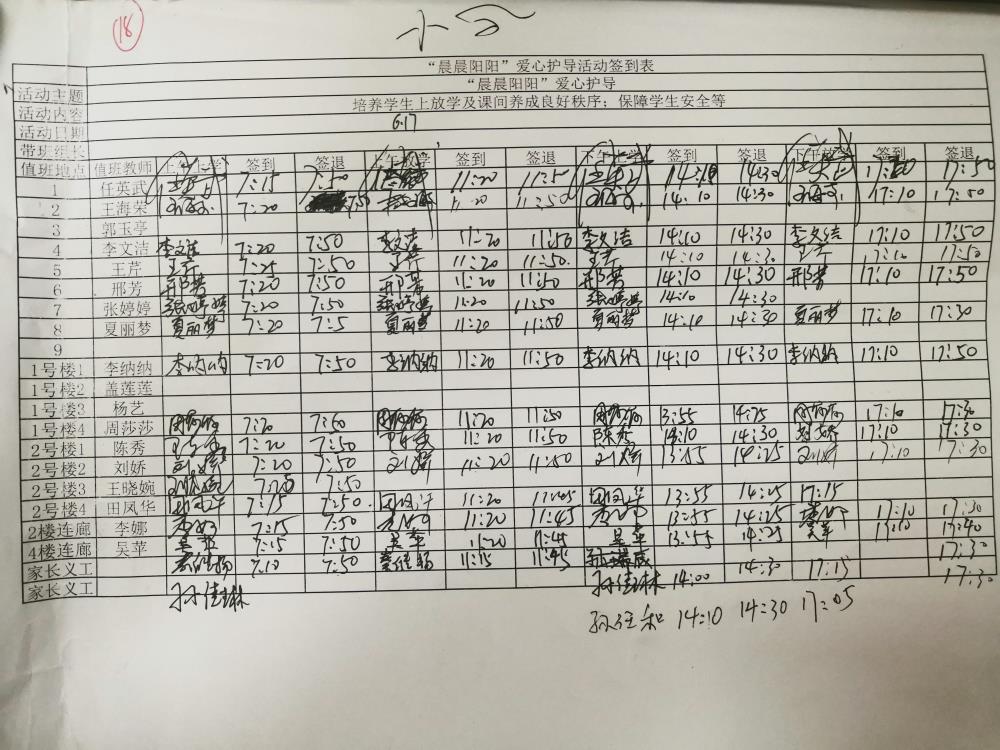 18
“晨晨阳阳”爱心护导活动签到表
活动主题 “晨晨阳阳”爱心护导
活动内容 培养学生上放学及课间养成良好秩序；保障学生安全等
活动日期 6.17
带班组长
值班地点 值班教师 上午上学 签到 签退 上午放学 签到 签退 下午上学 签到 签退 下午放学 签到 签退
1 任英武 7:15 7:50 11:20 11:5 14:10 14:30 17:10 17:50
2 王海荣 7:20 7:50 11:20 11:50 14:10 14:30 17:10 17:50
3 郭玉亭
4 李文洁 李文洁 7:20 7:50 李文洁 11:20 11:50 李文洁 14:10 14:30 李文洁 17:10 17:50
5 王芹 王芹 7:25 7:50 王芹 11:20 11:50. 王芹 14:10 14:30 王芹 17:10 17:50
6 邢芳 邢芳 7:20 7:50 邢芳 11:20 11:50 邢芳 14:10 14:30 邢芳 17:10 17:50
7 张婷婷 张婷婷 7:20 7:50 张婷婷 11:20 11:50 张婷婷 14:10 14:30
8 夏丽梦 夏丽梦 7:20 7:5 夏丽梦 11:20 11:50 夏丽梦 14:10 14:30 夏丽梦 17:10 17:30
9
1号楼1 李纳纳 李纳纳 7:20 7:50 李纳纳 11:20 11:50 李纳纳 14:10 14:30 李纳纳 17:10 17:50
1号楼2 盖莲莲
1号楼3 杨艺
1号楼4 周莎莎 7:20 7:50 11:20 11:50 13:55 14:25 17:10 17:30
2号楼1 陈秀 7:20 7:50 11:20 11:50 陈秀 14:10 14:30 17:10 17:30
2号楼2 刘娇 刘娇 7:20 7:50 刘娇 11:20 11:50 刘娇 13:55 14:25 刘娇 17:10 17:30
2号楼3 王晓婉 王晓婉 7:20 7:50
2号楼4 田凤华 田凤华 7:15 7:50 田凤华 11:20 田凤华 13:55 14:25 17:15
2楼连廊 李娜 李娜 7:15 7:50 李娜 11:20 11:45 李娜 13:55 14:25 李娜 17:10 17:30
4楼连廊 吴苹 吴苹 7:15 7:50 吴苹 11:20 11:45 吴苹 13:55 14:25 吴苹 17:10 17:40
家长义工 7:10 7:50 11:15 11:45 14:30 17:15 17:30
家长义工 孙佳琳 孙佳琳 14:00 17:30
14:10 14:30 17:05